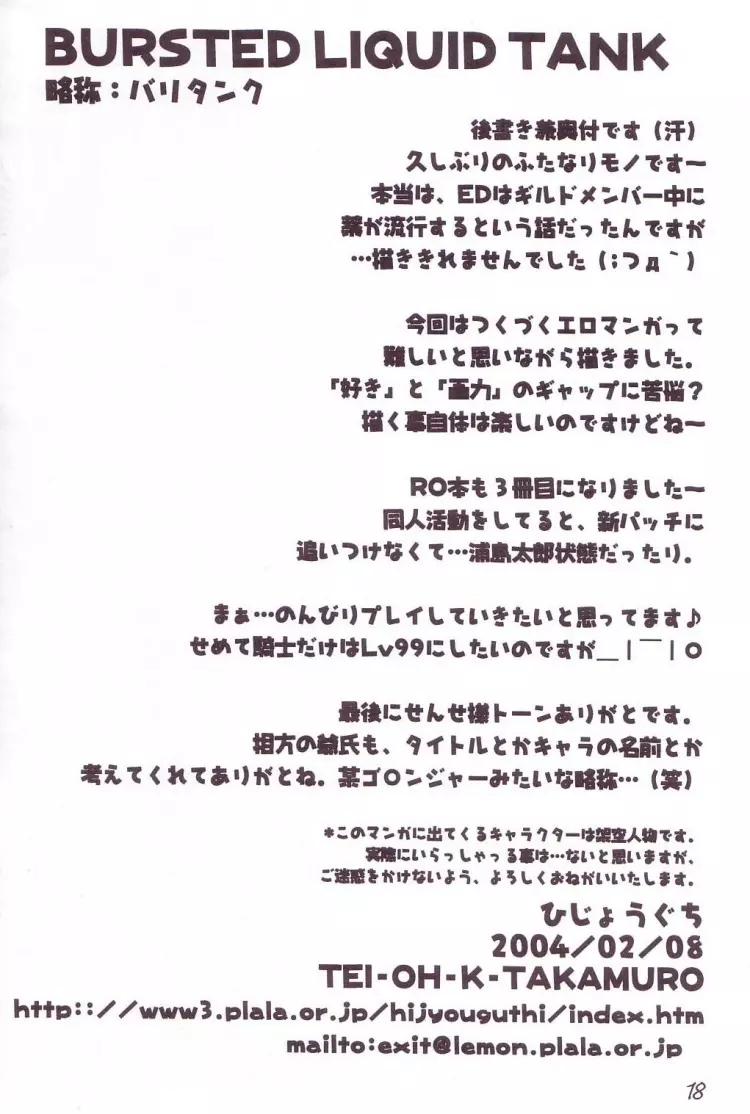 BURSTED LIQUID TANK
略称：バリタンク
後書き兼奥付です（汗）
久しぶりのふたなりモノです～
本当は、EDはギルドメンバー中に
薬が流行するという話だったんですが
…描ききれませんでした（；つд｀）
今回はつくづくエロマンガって
難しいと思いながら描きました。
『好き』と『画力』のギャップに苦悩？
描く事自体は楽しいのですけどね～
RO本も３冊目になりました～
同人活動をしてると、新パッチに
追いつけなくて…浦島太郎状態だったり。
まぁ…のんびりプレイしていきたいと思ってます♪
せめて騎士だけはLv99にしたいのですが＿｜￣｜○
最後にせんせ様トーンありがとです。
相方の爺氏も、タイトルとかキャラの名前とか
考えてくれてありがとね。某ゴ○ンジャーみたいな略称…（笑）
*このマンガに出てくるキャラクターは架空人物です。
実際にいらっしゃる事は…ないと思いますが、
ご迷惑をかけないよう、よろしくおねがいいたします。
ひじょうぐち
2004/02/08
TEI-OH-K-TAKAMURO
http:://www3.plala.or.jp/hijyouguthi/index.htm
mailto:exit@lemon.plala.or.jp
18